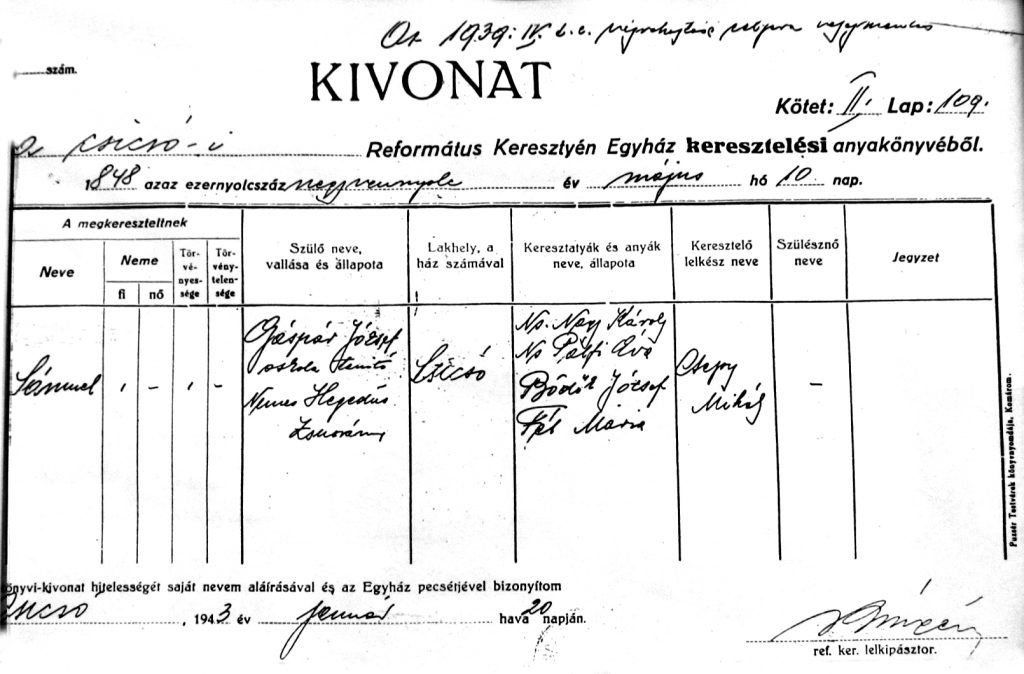 Az 1939: IV. t. c. végrehajtási céljára
......szám.
KIVONAT
Kötet: II. Lap: 109.
a csicsó-i Református Keresztyén Egyház keresztelési anyakönyvéből.
1848 azaz ezernyolcszáz negyvennyolc év május hó 10 nap.
A megkereszteltnek
Neve
Neme
fi
nő
Tör-
vé-
nyes-
sége
Tör-
vény-
telen-
sége
Szülő neve,
vallása és állapota
Lakhely, a
ház számával
Keresztatyák és anyák
neve, állapota
Keresztelő
lelkész neve
Szülésznő
neve
Jegyzet
Sámuel
,
-
,
-
Gáspár József
oskola tanító
Nemes Hegedüs
Zsuzsánna
Csicsó
Ns. Nagy Károly
Ns Pálfi Éva
Bödők József
Mária
Csepy
Mihály
-
önyvi-kivonat hitelességét saját nevem aláírásával és az Egyház pecsétjével bizonyítom
Csicsó, 1943 év január hava 20 napján.
ref. ker. lelkipásztor.
Pazsér Testvérek könyvnyomdája, Komárom.